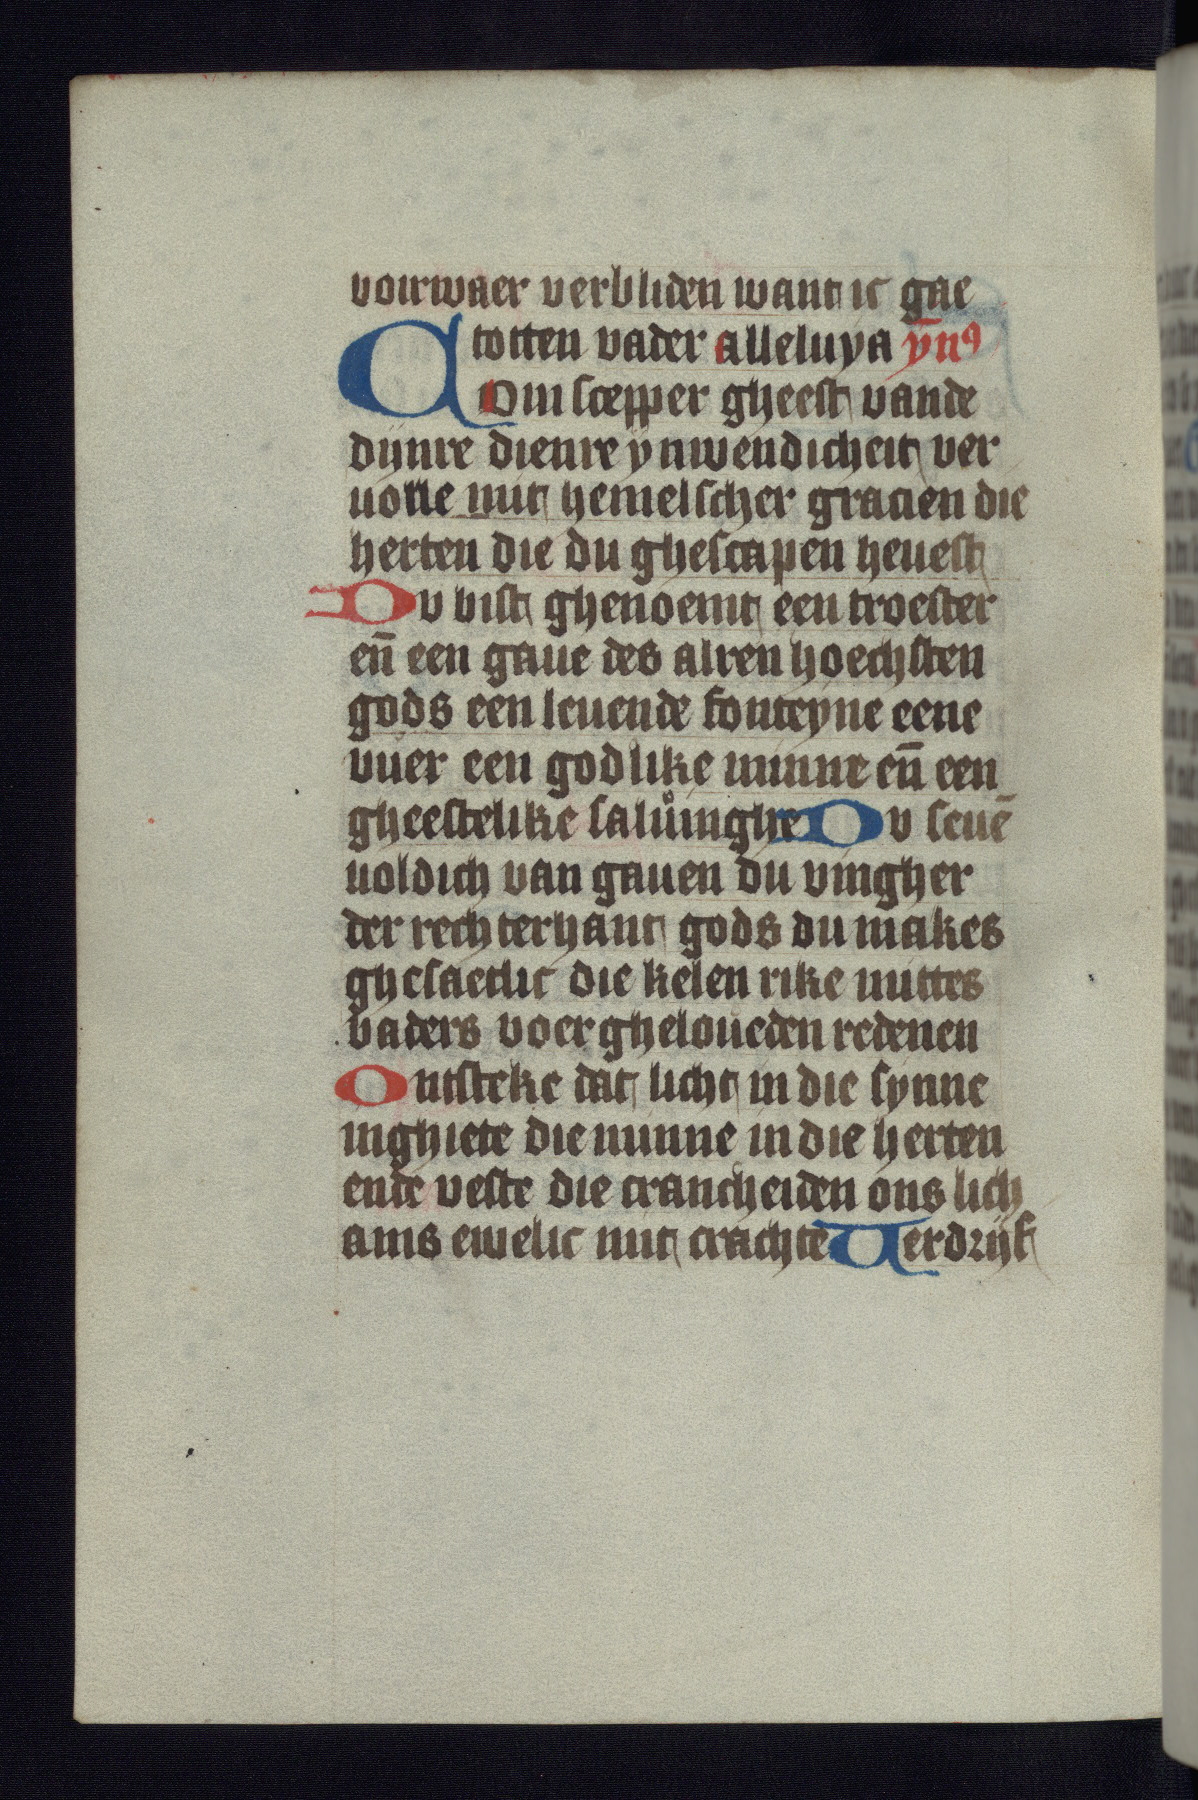 voirwaer verbliden want ic gae
totten vader alleluya yn̄ꝰ
Com scepper gheest vande
dijnre dienre ynwendicheit ver
uolle mit hemelscher gracien die
herten die du ghescapen heuest
Du bist ghenoemt een troester
en̄ een gaue des alren hoechsten
gods een leuende fonteyne eene
vuer een godlike minne en̄ een
gheestelike saluinghe Du seuē
uoldich van gauen du vingher
der rechterhant gods du makes
ghesaetlic die kelen rike mittes
vaders voer gheloueden redenen
Ontsteke dat licht in die synne
inghiete die minne in die herten
ende veste die crancheiden ons lich
ams ewelic mit crachte Uerdrijf